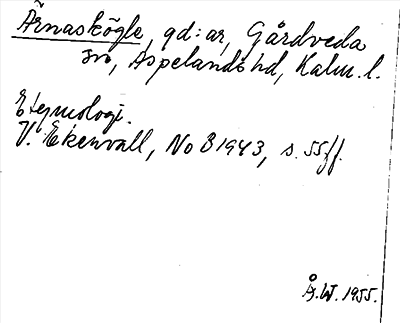 Ärnaskögle, gd:ar, Gårdveda
sn, Aspelands hd, Kalm. l.
Etymologi.
V. Ekenvall, No B 1943, s. 55ff.
Å.W. 1955.